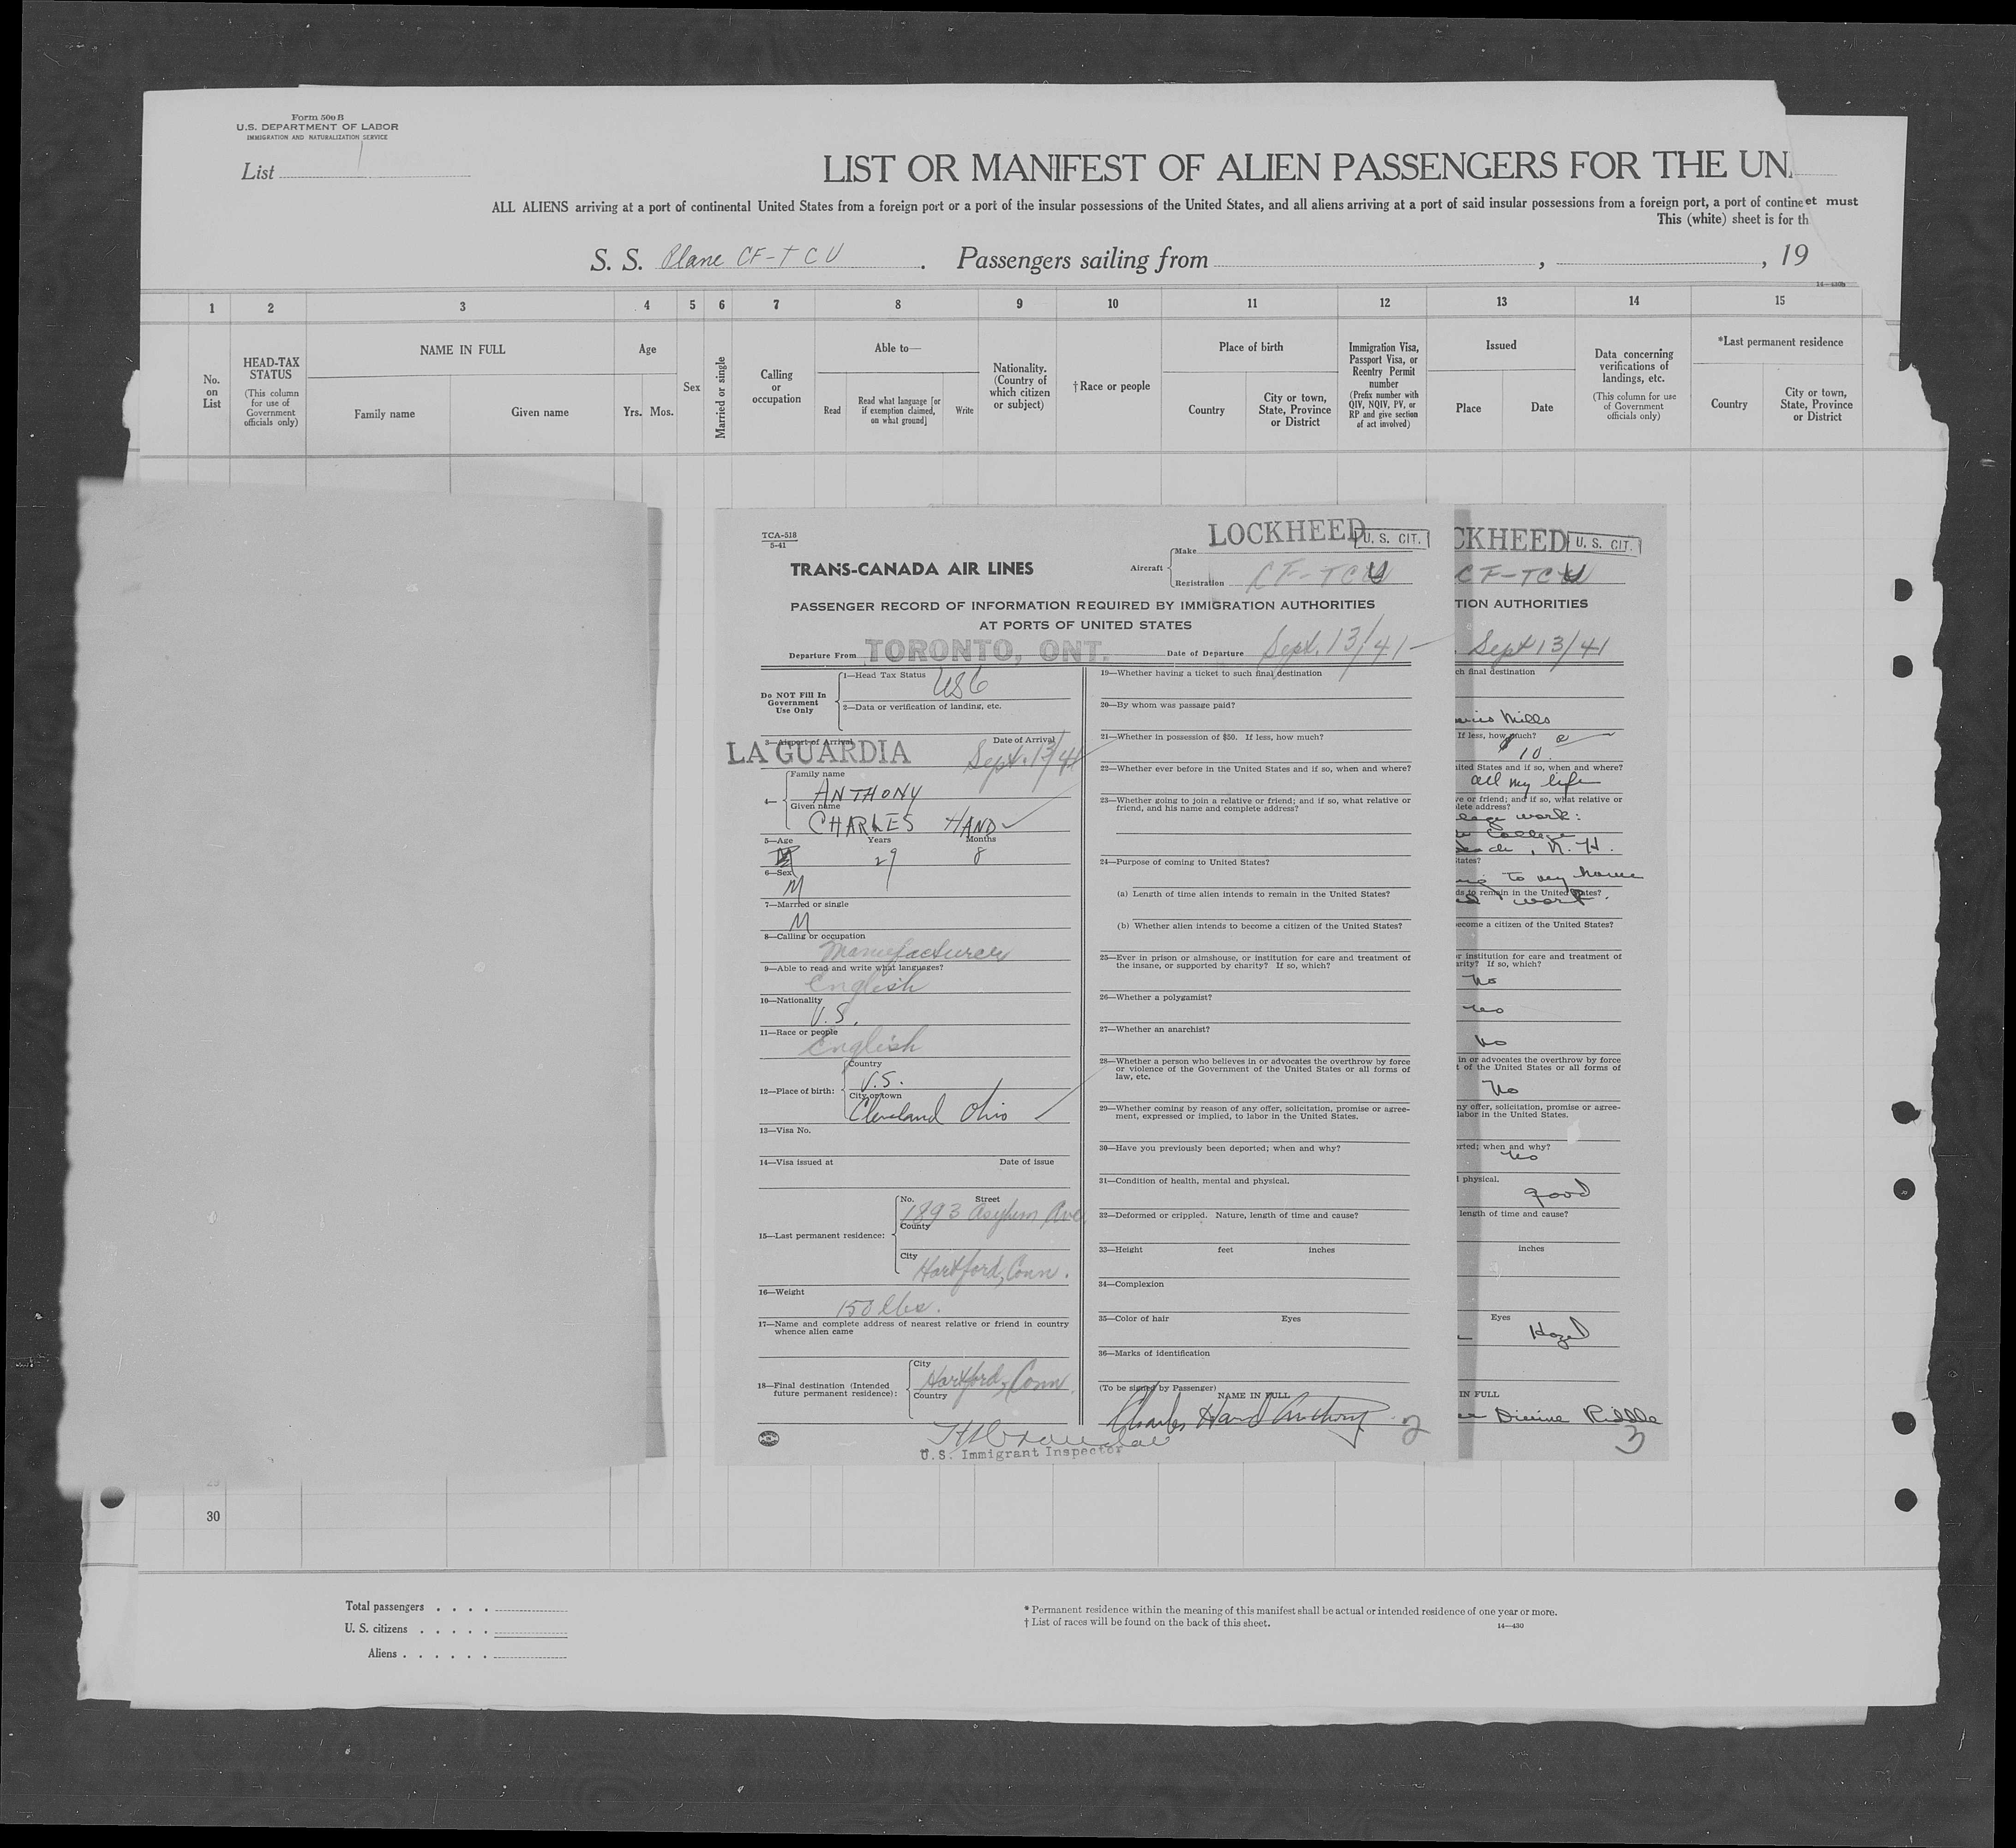 Form 500 B
U.S. DEPARTMENT OF LABOR
IMMIGRATION AND NATURALIZATION SERVICE
List 1
LIST OR MANIFEST OF ALIEN PASSENGERS FOR THE UN
ALL ALIENS arriving at a port of continental United States from a foreign port or a port of the insular possessions of the United States, and all aliens arriving at a port of said insular possessions from a foreign port, a port of contine et must
This (white) sheet is for th
S. S. Plane CF-TCU . Passengers sailing from , , 19
14-430b
1 2 3 4 5 6 7 8 9 10 11 12 13 14 15
No. on List
HEAD-TAX STATUS
(This column for use of Government officials only)
NAME IN FULL
Family name
Given name
Age
Yrs. Mos.
Sex
Married or single
Calling or occupation
Able to—
Read
Read what language [or if exemption claimed, on what ground]
Write
Nationality. (Country of which citizen or subject)
† Race or people
Place of birth
Country
City or town, State, Province or District
Immigration Visa, Passport Visa, or Reentry Permit number
(Prefix number with QIV, NQIV, PV, or RP and give section of act involved)
Issued
Place
Date
Data concerning verifications of landings, etc.
(This column for use of Government officials only)
*Last permanent residence
Country
City or town, State, Province or District
TCA-518
5-41
TRANS-CANADA AIR LINES
Aircraft
Make LOCKHEED
U. S. CIT.
Registration CF-TCU
PASSENGER RECORD OF INFORMATION REQUIRED BY IMMIGRATION AUTHORITIES
AT PORTS OF UNITED STATES
Departure From TORONTO, ONT. Date of Departure Sept. 13/41
Do NOT Fill In Government Use Only
1—Head Tax Status USC
2—Data or verification of landing, etc.
3—Airport of Arrival Date of Arrival
LA GUARDIA Sept. 13/41
4—
Family name
ANTHONY
Given name
CHARLES HAND
5—Age Years Months
29 8
6—Sex
M
7—Married or single
M
8—Calling or occupation
Manufacturer
9—Able to read and write what languages?
English
10—Nationality
U.S.
11—Race or people
English
12—Place of birth:
Country
U.S.
City or town
Cleveland Ohio
13—Visa No.
14—Visa issued at Date of issue
15—Last permanent residence:
No. Street
1893 Asylum Ave
County
City
Hartford, Conn.
16—Weight
150 lbs.
17—Name and complete address of nearest relative or friend in country whence alien came
18—Final destination (Intended future permanent residence):
City
Hartford, Conn.
Country
U.S. Immigrant Inspector
19—Whether having a ticket to such final destination
20—By whom was passage paid?
21—Whether in possession of $50. If less, how much?
22—Whether ever before in the United States and if so, when and where?
23—Whether going to join a relative or friend; and if so, what relative or friend, and his name and complete address?
24—Purpose of coming to United States?
(a) Length of time alien intends to remain in the United States?
(b) Whether alien intends to become a citizen of the United States?
25—Ever in prison or almshouse, or institution for care and treatment of the insane, or supported by charity? If so, which?
26—Whether a polygamist?
27—Whether an anarchist?
28—Whether a person who believes in or advocates the overthrow by force or violence of the Government of the United States or all forms of law, etc.
29—Whether coming by reason of any offer, solicitation, promise or agreement, expressed or implied, to labor in the United States.
30—Have you previously been deported; when and why?
31—Condition of health, mental and physical.
32—Deformed or crippled. Nature, length of time and cause?
33—Height feet inches
34—Complexion
35—Color of hair Eyes
36—Marks of identification
(To be signed by Passenger)
NAME IN FULL
Charles Hand Anthony 2
CKHEED
U. S. CIT.
CF-TCU
TION AUTHORITIES
Sept 13/41
ch final destination
Mills
If less, how much?
10
ited States and if so, when and where?
all my life
e or friend; and if so, what relative or
lete address?
work:
College
N. H.
tates?
to my home
ds to remain in the United States?
work.
ecome a citizen of the United States?
r institution for care and treatment of
arity? If so, which?
No
No
No
in or advocates the overthrow by force
t of the United States or all forms of
No
ny offer, solicitation, promise or agree-
labor in the United States.
rted; when and why?
No
l physical.
good
length of time and cause?
inches
Eyes
Hazel
IN FULL
Riddle
3
30
Total passengers . . . .
U. S. citizens . . . . .
Aliens . . . . . .
* Permanent residence within the meaning of this manifest shall be actual or intended residence of one year or more.
† List of races will be found on the back of this sheet.
14—430